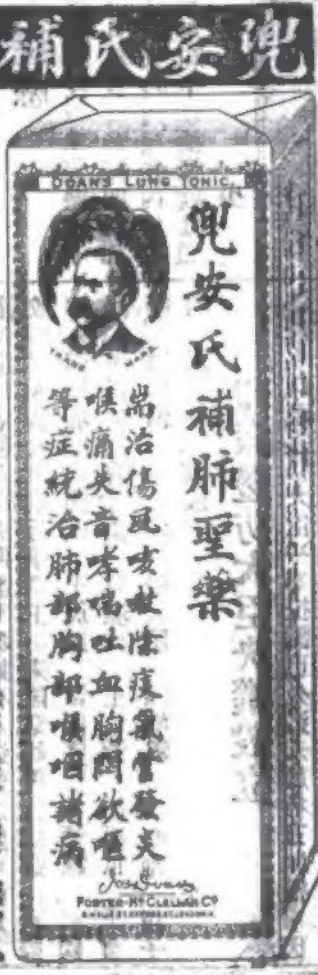 兜安氏補
DOAN'S LUNG TONIC.
TRADE MARK
兜安氏補肺聖藥
耑治傷風咳嗽除痰氣管發炎
喉痛失音哮喘吐血胸悶欲嘔
等症統治肺部胸部喉咽諸病
FOSTER-McCLELLAN Co